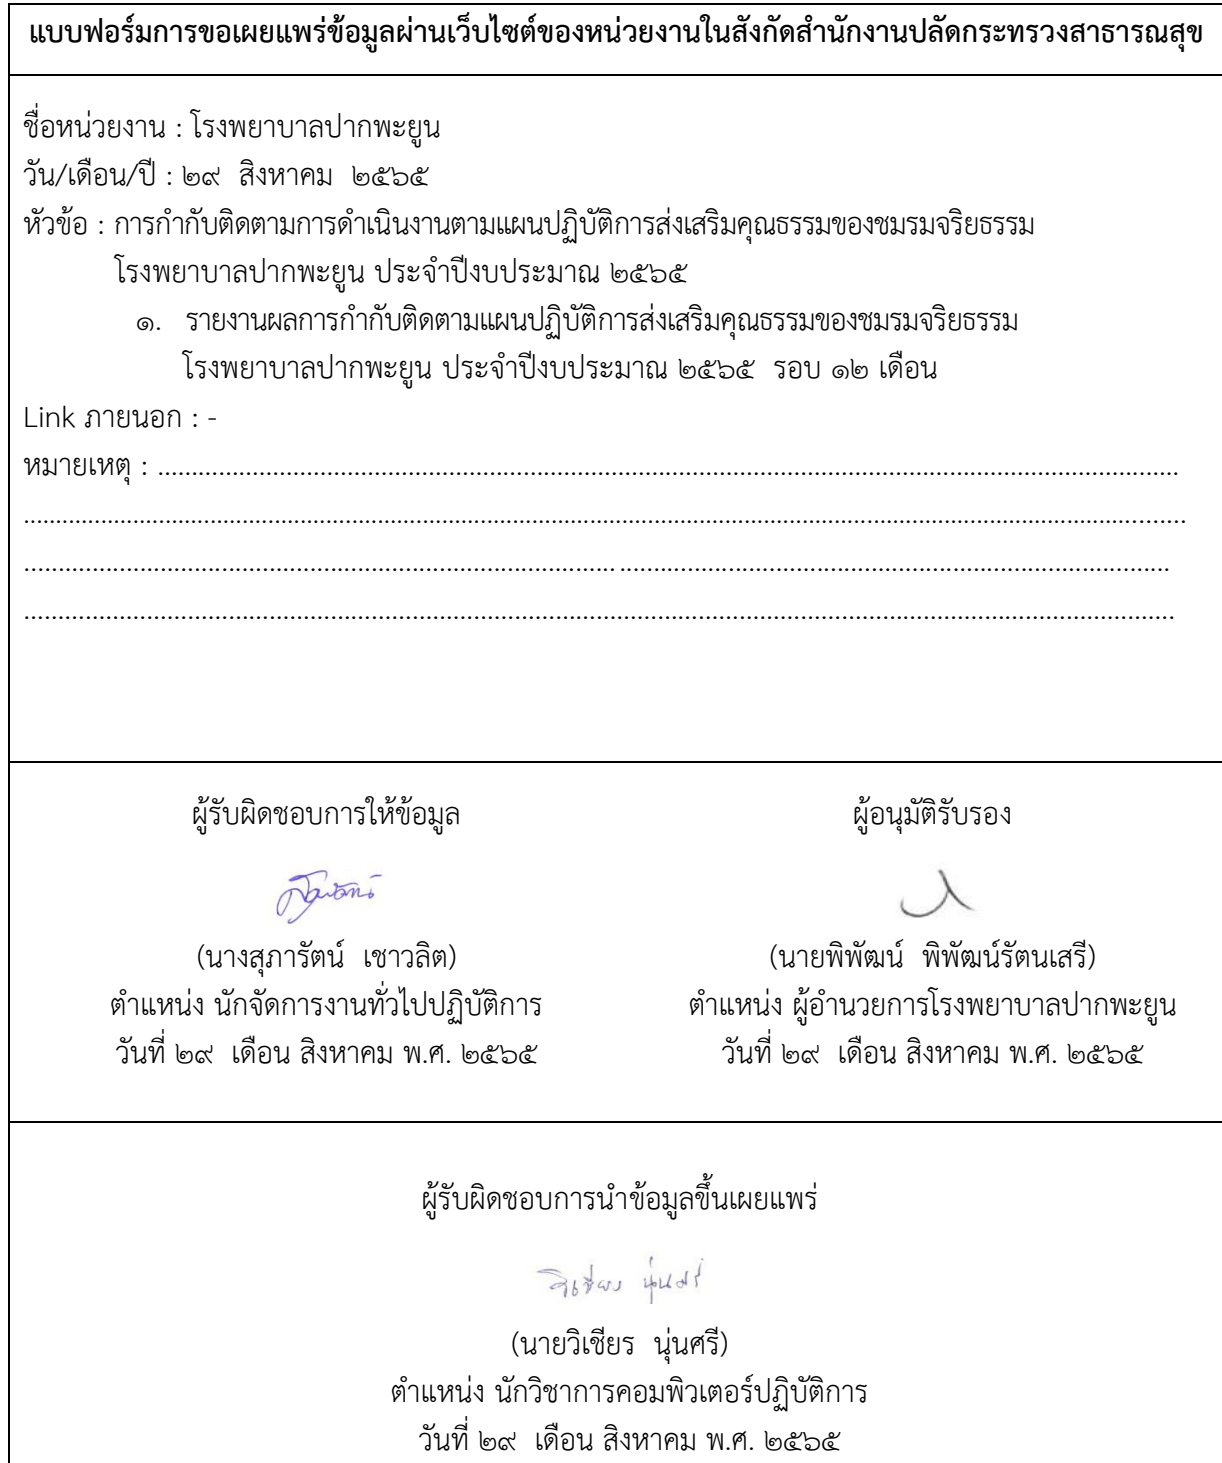 แบบฟอร์มการขอเผยแพร่ข้อมูลผ่านเว็บไซต์ของหน่วยงานในสังกัดสำนักงานปลัดกระทรวงสาธารณสุข
ชื่อหน่วยงาน : โรงพยาบาลปากพะยูน
วัน/เดือน/ปี : ๒๙ สิงหาคม ๒๕๖๕
หัวข้อ : การกำกับติดตามการดำเนินงานตามแผนปฏิบัติการส่งเสริมคุณธรรมของชมรมจริยธรรม
โรงพยาบาลปากพะยูน ประจำปีงบประมาณ ๒๕๖๕
๑. รายงานผลการกำกับติดตามแผนปฏิบัติการส่งเสริมคุณธรรมของชมรมจริยธรรม
โรงพยาบาลปากพะยูน ประจำปีงบประมาณ ๒๕๖๕ รอบ ๑๒ เดือน
Link ภายนอก : -
หมายเหตุ : ........................................................................................................................................................
............................................................................................................................................................................
............................................................................................................................................................................
............................................................................................................................................................................
ผู้รับผิดชอบการให้ข้อมูล
สุภารัตน์
(นางสุภารัตน์ เชาวลิต)
ตำแหน่ง นักจัดการงานทั่วไปปฏิบัติการ
วันที่ ๒๙ เดือน สิงหาคม พ.ศ. ๒๕๖๕
ผู้อนุมัติรับรอง
(นายพิพัฒน์ พิพัฒน์รัตนเสรี)
ตำแหน่ง ผู้อำนวยการโรงพยาบาลปากพะยูน
วันที่ ๒๙ เดือน สิงหาคม พ.ศ. ๒๕๖๕
ผู้รับผิดชอบการนำข้อมูลขึ้นเผยแพร่
วิเชียร นุ่นศรี
(นายวิเชียร นุ่นศรี)
ตำแหน่ง นักวิชาการคอมพิวเตอร์ปฏิบัติการ
วันที่ ๒๙ เดือน สิงหาคม พ.ศ. ๒๕๖๕